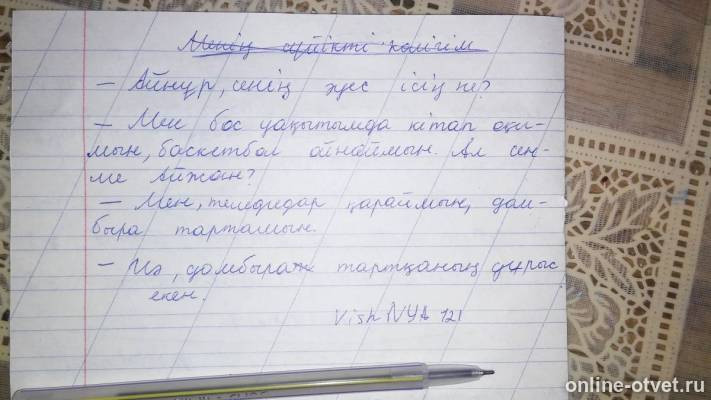 Менің сүйікті көлігім
— Айнұр, сенің хус ісің не?
— Мен бос уақытымда кітап оқи-
мын, баскетбол ойнаймын. Ал сен-
ше Айжан?
— Мен, теледидар қараймын, дом-
быра тартамын.
— Иә, домбыраң тартқаның дұрыс
екен.
VishNYA 121
online-otvet.ru